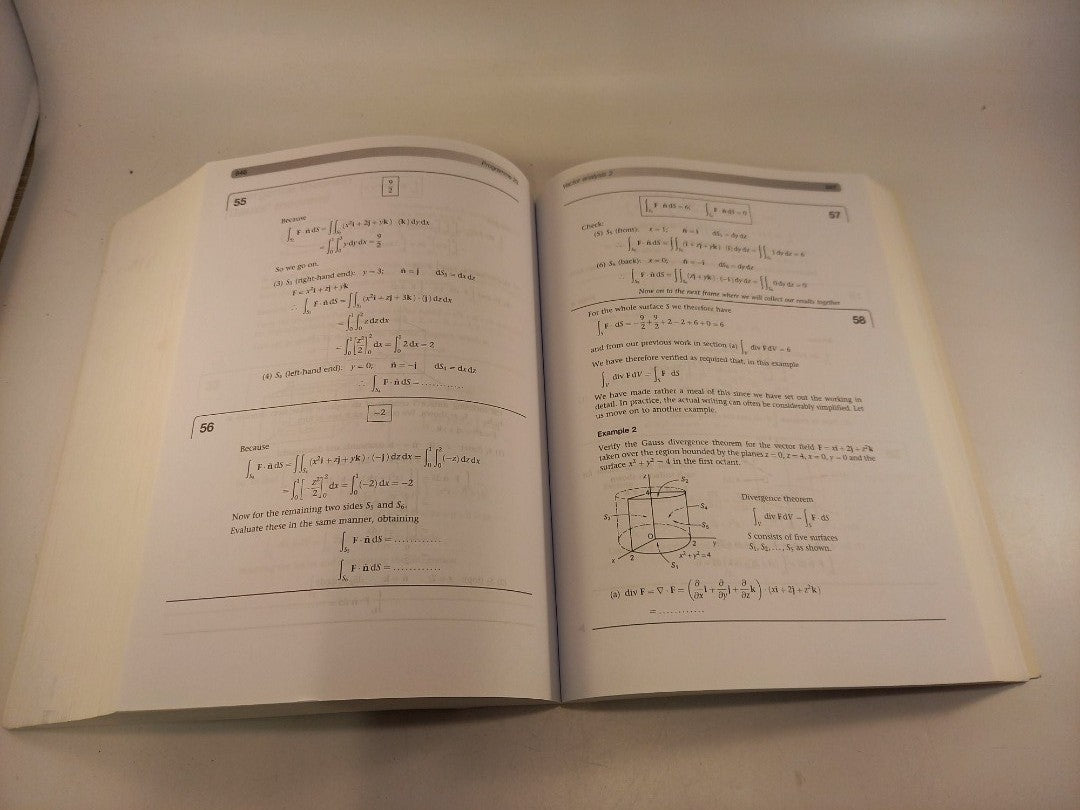 646 Programme 20
55
9/2
Because
∫S₂ F · n̂ dS = ∫∫S₂ (x²i + 2j + yk) · (k) dy dx
= ∫₀¹∫₀³ y dy dx = 9/2
So we go on.
(3) S₃ (right-hand end): y = 3; n̂ = j dS₃ = dx dz
F = x²i + zj + yk
∴ ∫S₃ F · n̂ dS = ∫∫S₃ (x²i + zj + 3k) · (j) dz dx
= ∫₀¹∫₀² z dz dx
= ∫₀¹ [z²/2]₀² dx = ∫₀¹ 2 dx = 2
(4) S₄ (left-hand end): y = 0; n̂ = −j dS₄ = dx dz
∴ ∫S₄ F · n̂ dS = ............
56
−2
Because
∫S₄ F · n̂ dS = ∫∫S₄ (x²i + zj + yk) · (−j) dz dx = ∫₀¹∫₀² (−z) dz dx
= ∫₀¹ [−z²/2]₀² dx = ∫₀¹ (−2) dx = −2
Now for the remaining two sides S₅ and S₆.
Evaluate these in the same manner, obtaining
∫S₅ F · n̂ dS = ............
∫S₆ F · n̂ dS = ............
Vector analysis 2
∫S₅ F · n̂ dS = 6; ∫S₆ F · n̂ dS = 0
57
Check:
(5) S₅ (front): x = 1; n̂ = i dS₅ = dy dz
∴ ∫S₅ F · n̂ dS = ∫∫S₅ (i + zj + yk) · (i) dy dz = ∫∫S₅ 1 dy dz = 6
(6) S₆ (back): x = 0; n̂ = −i dS₆ = dy dz
∴ ∫S₆ F · n̂ dS = ∫∫S₆ (zj + yk) · (−i) dy dz = ∫∫S₆ 0 dy dz = 0
Now on to the next frame where we will collect our results together
58
For the whole surface S we therefore have
∫S F · dS = −9/2 + 9/2 + 2 − 2 + 6 + 0 = 6
and from our previous work in section (a) ∫V div F dV = 6
We have therefore verified as required that, in this example
∫V div F dV = ∫S F · dS
We have made rather a meal of this since we have set out the working in
detail. In practice, the actual writing can often be considerably simplified. Let
us move on to another example.
Example 2
Verify the Gauss divergence theorem for the vector field F = xi + 2j + z²k
taken over the region bounded by the planes z = 0, z = 4, x = 0, y = 0 and the
surface x² + y² = 4 in the first octant.
z
4
S₂
S₃
S₄
S₅
O
2
2
x
y
x² + y² = 4
S₁
Divergence theorem
∫V div F dV = ∫S F · dS
S consists of five surfaces
S₁, S₂, ..., S₅ as shown.
(a) div F = ∇ · F = (∂/∂x i + ∂/∂y j + ∂/∂z k) · (xi + 2j + z²k)
= ............